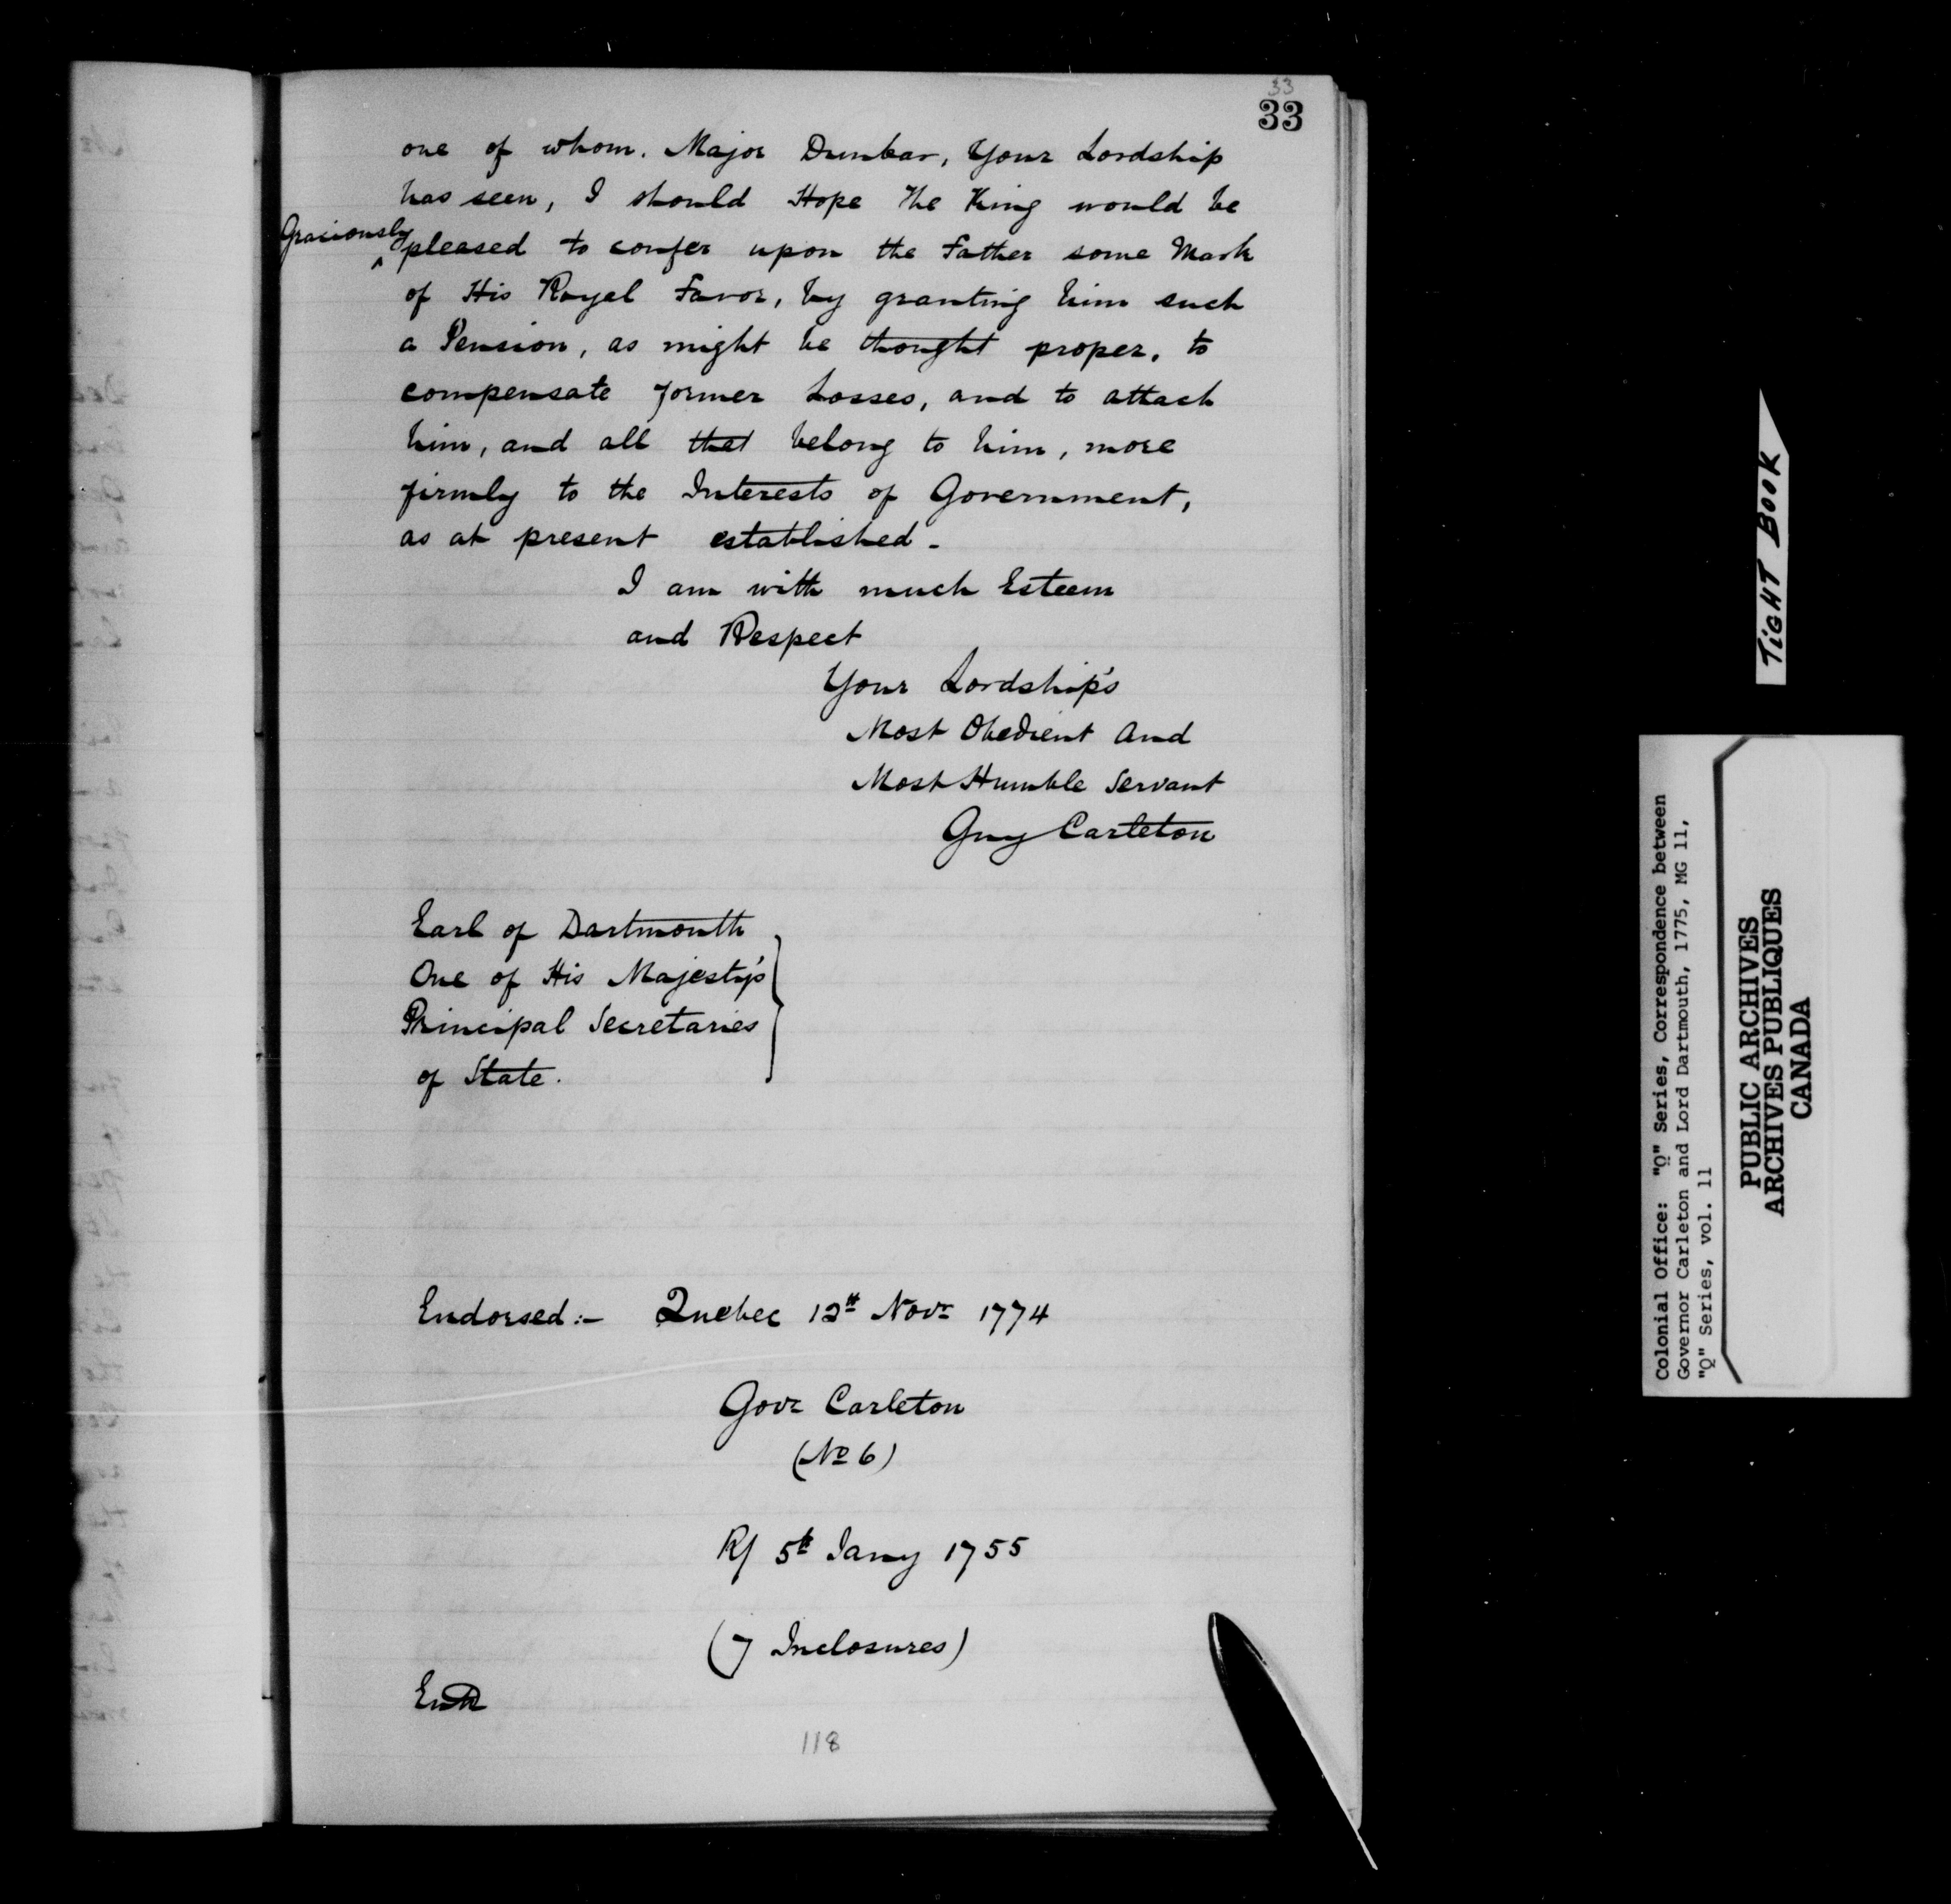 33
33
one of whom. Major Dunbar, Your Lordship
has seen, I should Hope The King would be
Graciously
^ pleased to confer upon the Father some Mark
of His Royal Favor, by granting him such
a Pension, as might be thought proper, to
compensate former Losses, and to attach
him, and all that belong to him, more
firmly to the Interests of Government,
as at present established -
I am with much Esteem
and Respect
Your Lordship's
Most Obedient And
Most Humble Servant
Guy Carleton
Earl of Dartmouth
One of His Majesty's
Principal Secretaries
of State.
Endorsed:- Quebec 12th Novr 1774
Govr Carleton
(No 6)
R/ 5th Jany 1755
(7 Inclosures)
118
TiGHT BOOK
Colonial Office: "Q" Series, Correspondence between
Governor Carleton and Lord Dartmouth, 1775, MG 11,
"Q" Series, vol. 11
PUBLIC ARCHIVES
ARCHIVES PUBLIQUES
CANADA